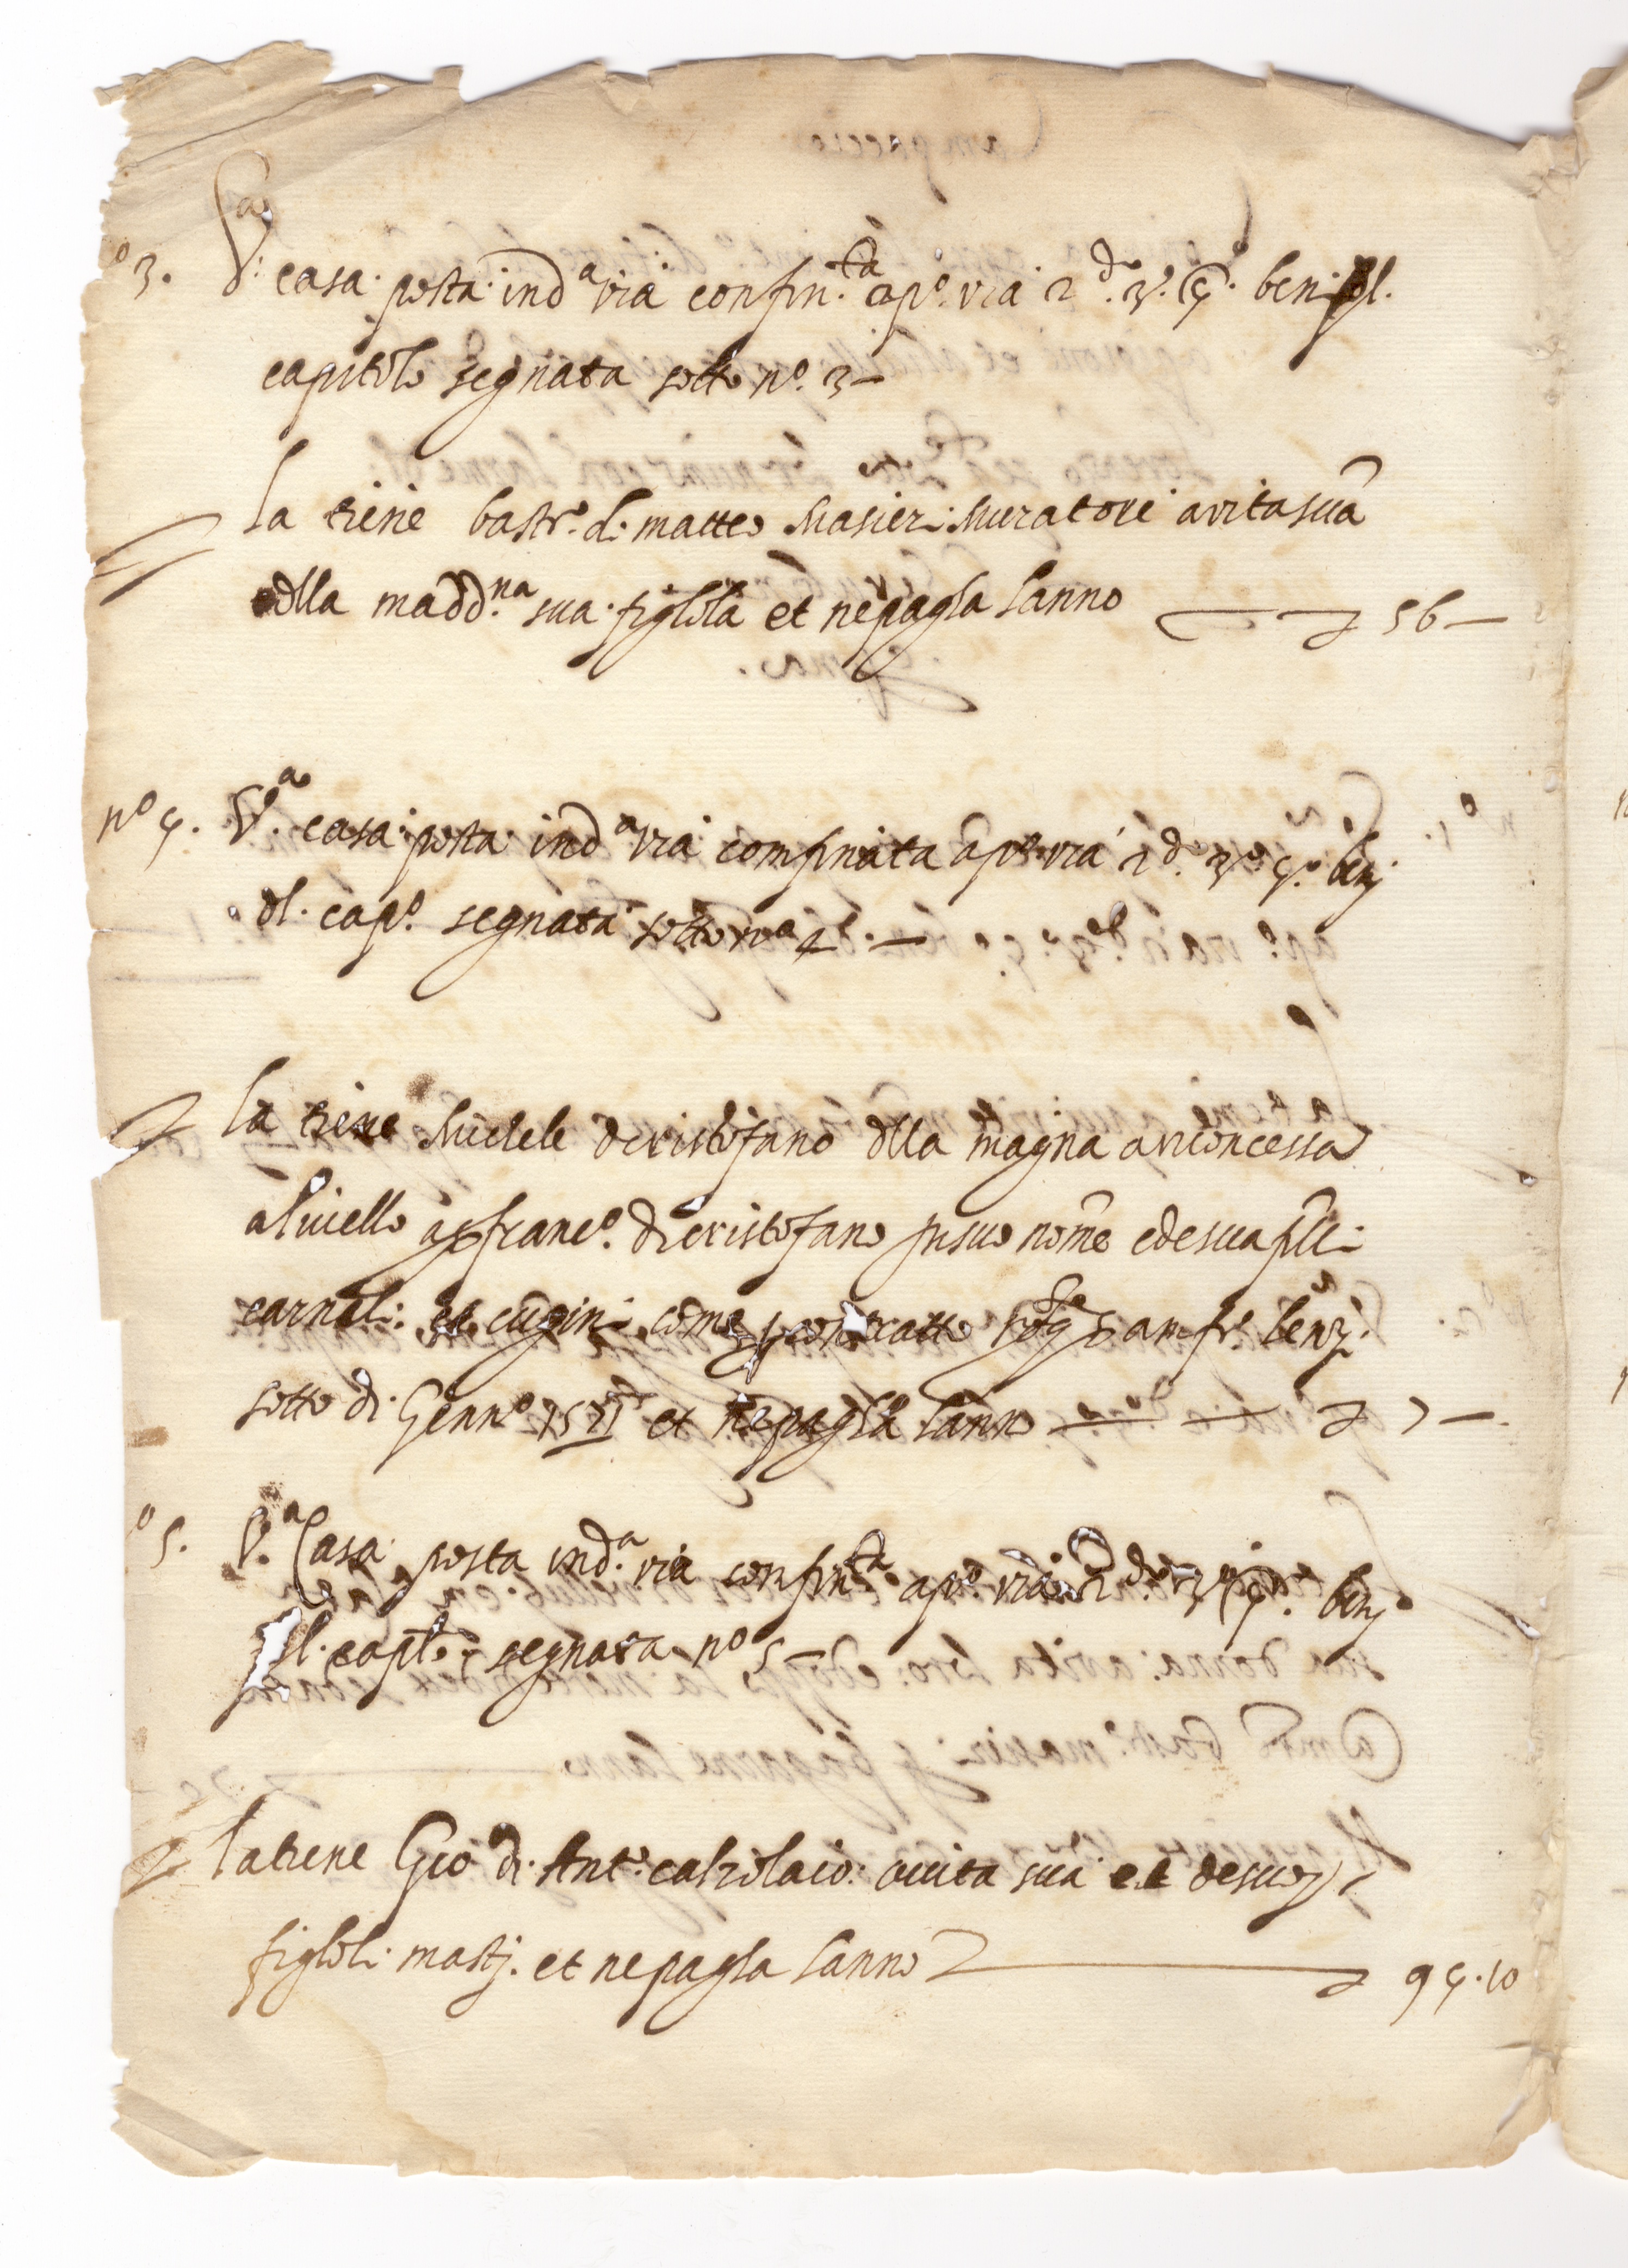 º 3. Vª: casa posta ind.ª via confin.ta a pº. via 2.d 3º. 4º. beni dl.
capitolo segnata sotto nº. 3 –
la tiene bastº. di matteo Masieri Muratore a vita sua
et dlla madd.na sua figliola et ne pagha lanno 56 –
nº 4. V.ª casa posta ind.ª via confinata a pº via 2.d 3º 4º. benj
dl. capº. segnata sotto nº 4 –
la tiene Michele di cristofano dlla magna a vi concessa
a livello a franc.º di cristofano
carnali: et cugini come contratto
sotto di Genn.º 1571 et ne pagha lanno 7 –
º 5. V.ª Casa posta ind.ª via confin.ta a pº via 2.d 3º 4º. benj
dl. capto. segnata nº 5
la tiene Gio di Antº. calzolaio: a vita sua et de suoj
figlioli mastj. et ne pagha lanno 94.10